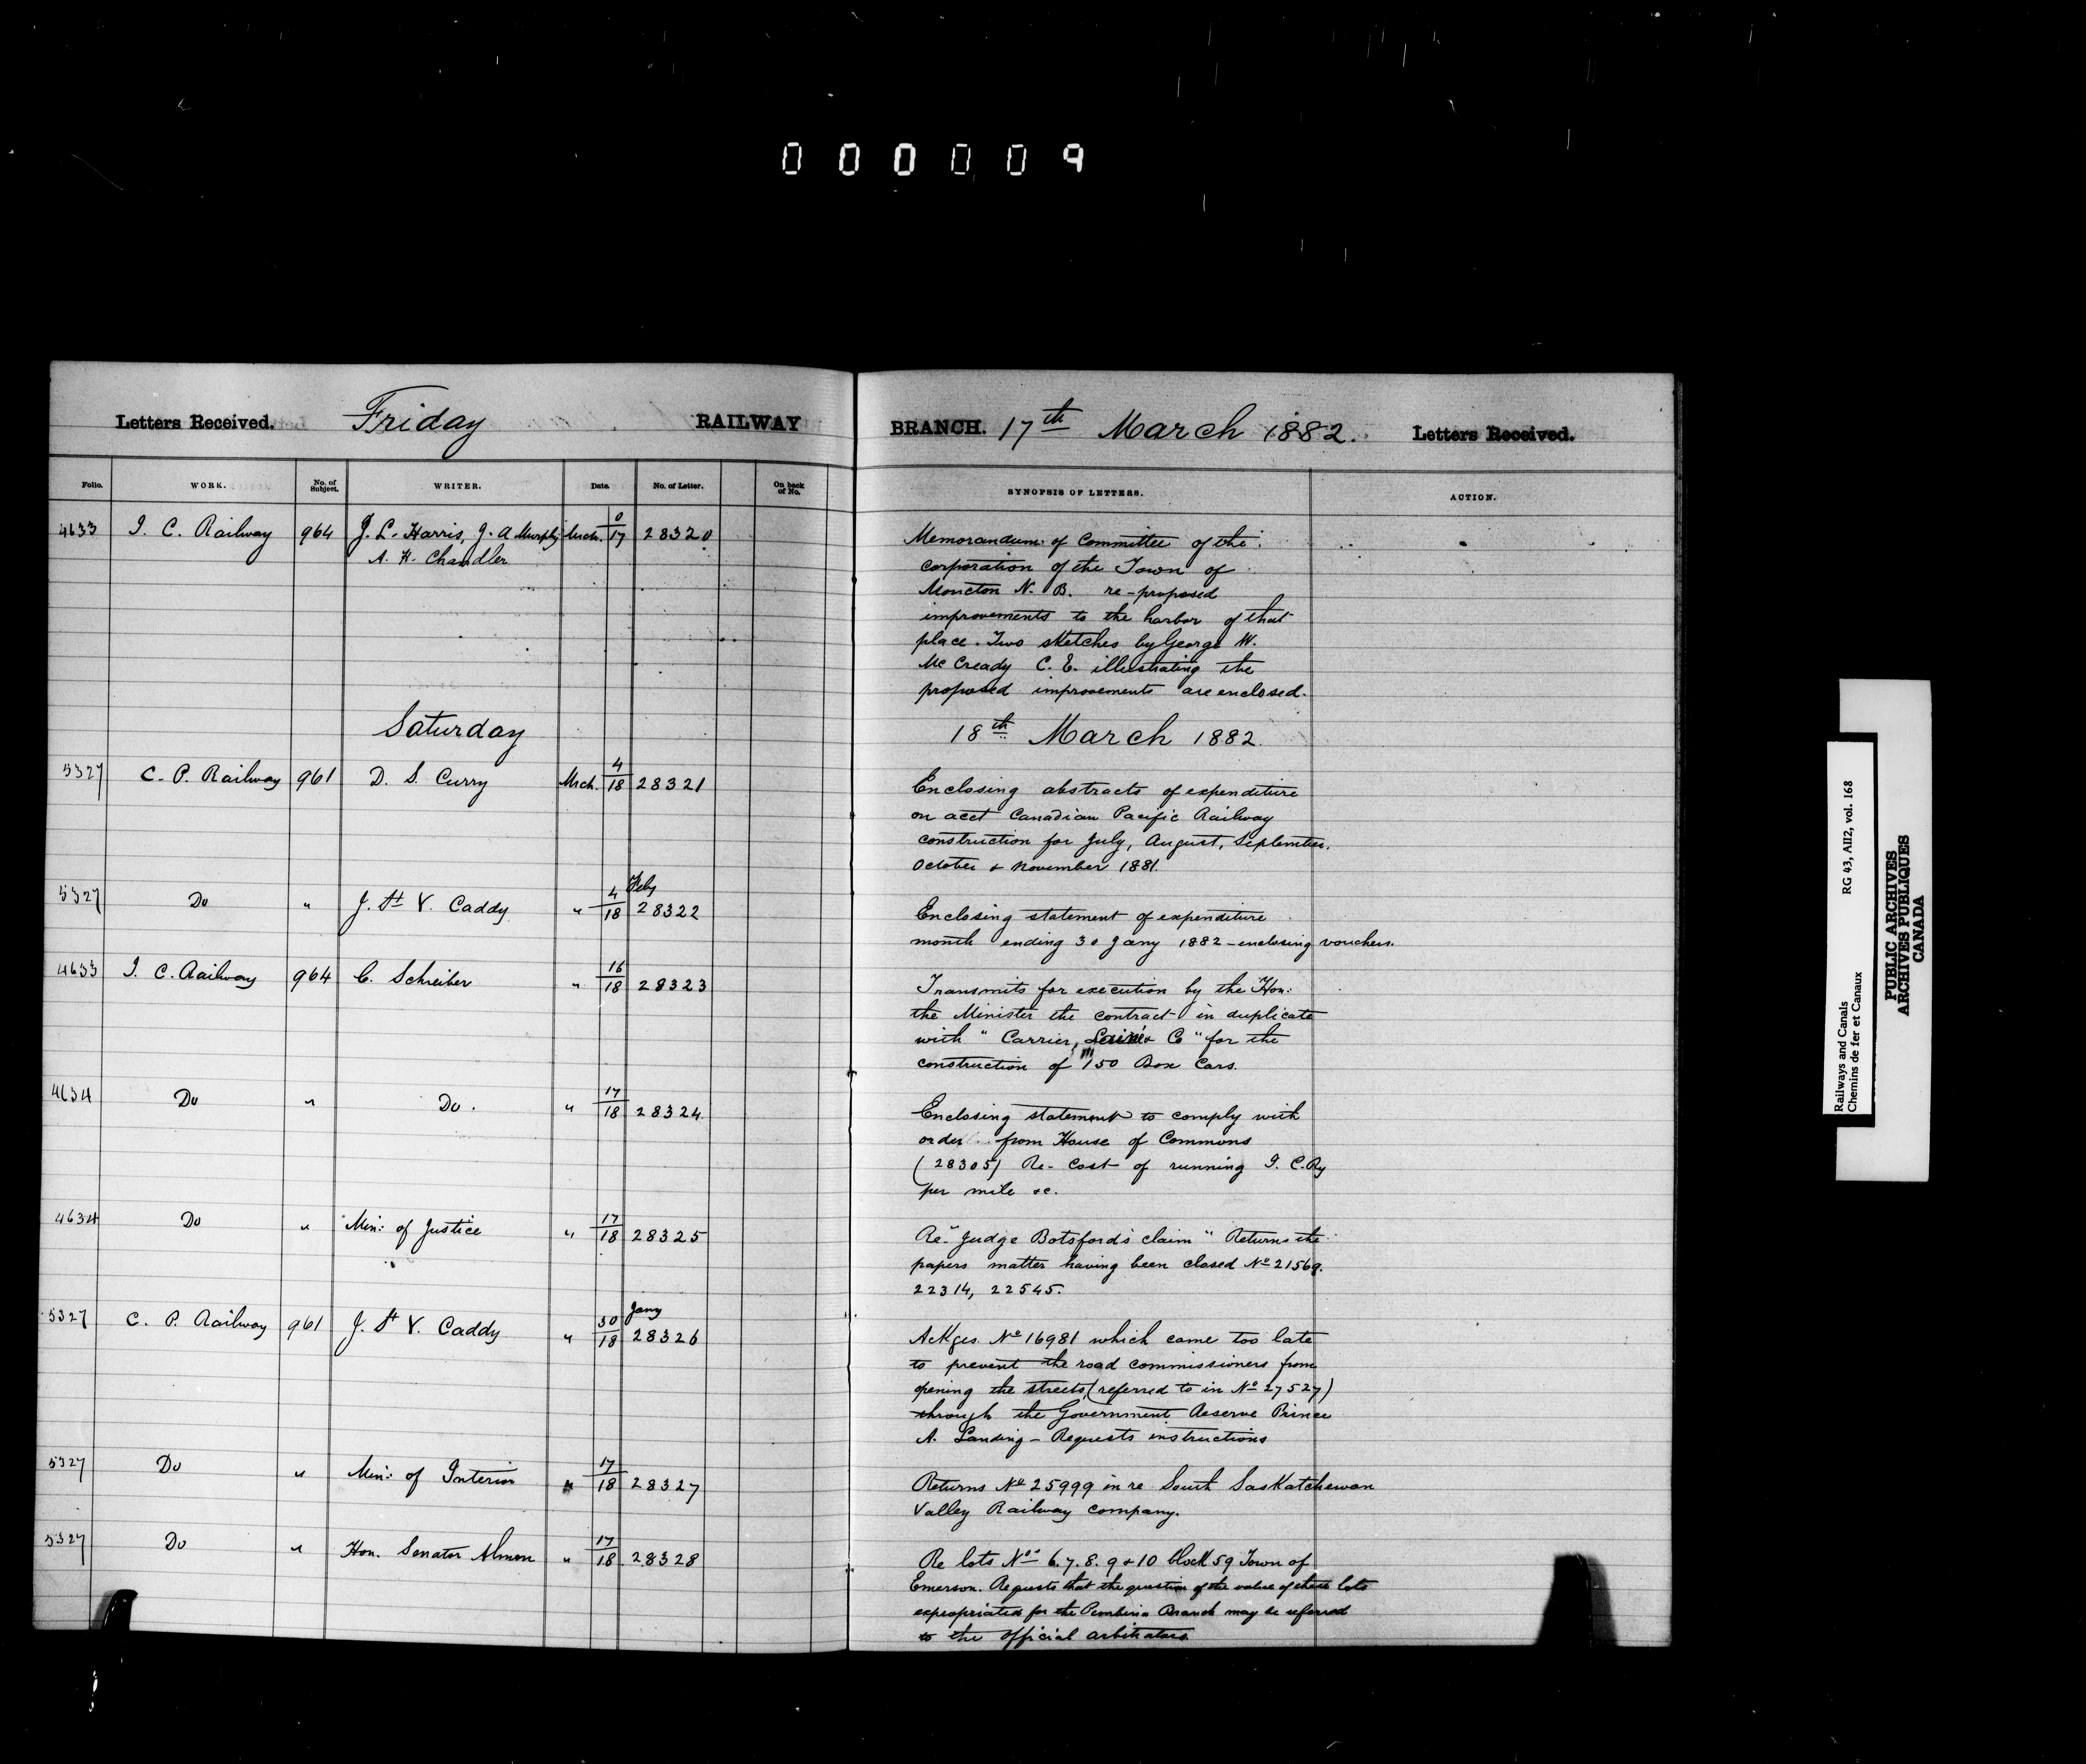 000009
Letters Received. Friday RAILWAY BRANCH. 17th March 1882. Letters Received.
Folio. WORK. No. of Subject. WRITER. Date. No. of Letter. On back of No. SYNOPSIS OF LETTERS. ACTION.
4633 I. C. Railway 964 J. L. Harris, J. A Murphy Mch. 0/17 28320 Memorandum of Committee of the
A. H. Chandler corporation of the Town of
Moncton N. B. re-proposed
improvements to the harbor of that
place. Two sketches by George W.
McCready C. E. illustrating the
proposed improvements are enclosed.
Saturday 18th March 1882.
5327 C. P. Railway 961 D. S. Curry Mch. 4/18 28321 Enclosing abstracts of expenditure
on acct Canadian Pacific Railway
construction for July, August, September,
October & November 1881.
5327 Do " J. St V. Caddy " 4/18 Feby 28322 Enclosing statement of expenditure
month ending 30 Jany 1882 - enclosing vouchers.
4633 I. C. Railway 964 C. Schreiber " 16/18 28323 Transmits for execution by the Hon:
the Minister the contract in duplicate
with " Carrier, Lainé & Co " for the
construction of 150 Box Cars.
4634 Do " Do. " 17/18 28324 Enclosing statement to comply with
order from House of Commons
(28305) Re- Cost of running I. C. Ry
per mile &c.
4634 Do " Min: of Justice " 17/18 28325 Re "Judge Botsford's claim" Returns the
papers matter having been closed No 21569.
22314, 22545.
5327 C. P. Railway 961 J. St V. Caddy " 30/18 Jany 28326 Ackges. No 16981 which came too late
to prevent the road commissioners from
opening the streets, (referred to in No 27527)
through the Government Reserve Prince
A. Landing - Requests instructions
5327 Do " Min: of Interior " 17/18 28327 Returns No 25999 in re South Saskatchewan
Valley Railway Company.
5327 Do " Hon. Senator Almon " 17/18 28328 Re lots Nos 6. 7. 8. 9 & 10 block 59 Town of
Emerson. Requests that the question of the value of these lots
expropriated for the Pembina Branch may be referred
to the official arbitrators.
Railways and Canals RG 43, AII2, vol. 168
Chemins de fer et Canaux
PUBLIC ARCHIVES
ARCHIVES PUBLIQUES
CANADA